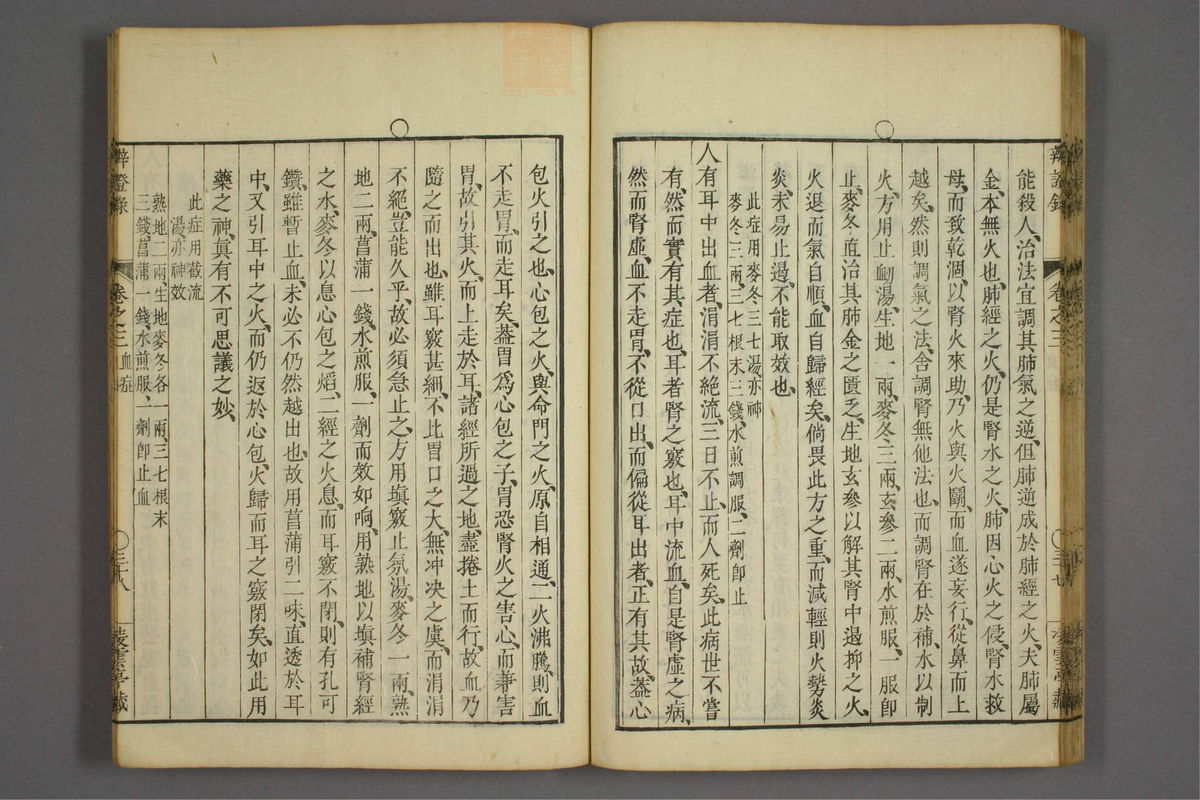 能殺人、治法宜調其肺氣之逆、但肺逆成於肺經之火、夫肺屬
金、本無火也、肺經之火、仍是腎水之火、肺因心火之侵、腎水救
母、而致乾涸、以腎火來助、乃火與火鬭、而血遂妄行、從鼻而上
越矣、然則調氣之法、舍調腎無他法也、而調腎在於補水以制
火、方用止衂湯、生地一兩、麥冬三兩、玄參二兩、水煎服、一服卽
止、麥冬直治其肺金之匱乏、生地玄參以解其腎中遏抑之火、
火退而氣自順、血自歸經矣、倘畏此方之重、而減輕則火勢炎
炎、未易止遏、不能取效也、
此症用麥冬三七湯亦神
麥冬三兩、三七根末三錢、水煎調服、二劑卽止
人有耳中出血者、涓涓不絕、流三日不止、而人死矣、此病世不嘗
有、然而實有其症也、耳者腎之竅也、耳中流血、自是腎虛之病、
然而腎虛、血不走胃、不從口出、而偏從耳出者、正有其故、葢心
包火引之也、心包之火、與命門之火、原自相通、二火沸騰、則血
不走胃、而走耳矣、葢胃爲心包之子、胃恐腎火之害心、而兼害
胃、故引其火、而上走於耳、諸經所過之地、盡捲土而行、故血乃
隨之而出也、雖耳竅甚細、不比胃口之大、無冲決之虞、而涓涓
不絕、豈能久乎、故必須急止之、方用塡竅止氛湯、麥冬一兩、熟
地二兩、菖蒲一錢、水煎服、一劑而效如响、用熟地以塡補腎經
之水、麥冬以息心包之熖、二經之火息、而耳竅不閉、則有孔可
鑽、雖暫止血、未必不仍然越出也、故用菖蒲引二味、直透於耳
中、又引耳中之火、而仍返於心包、火歸而耳之竅閉矣、如此用
藥之神、眞有不可思議之妙、
此症用截流
湯亦神效
熟地二兩、生地麥冬各一兩、三七根末
三錢、菖蒲一錢、水煎服、一劑卽止血
辨證錄
卷之三
血症
三十八